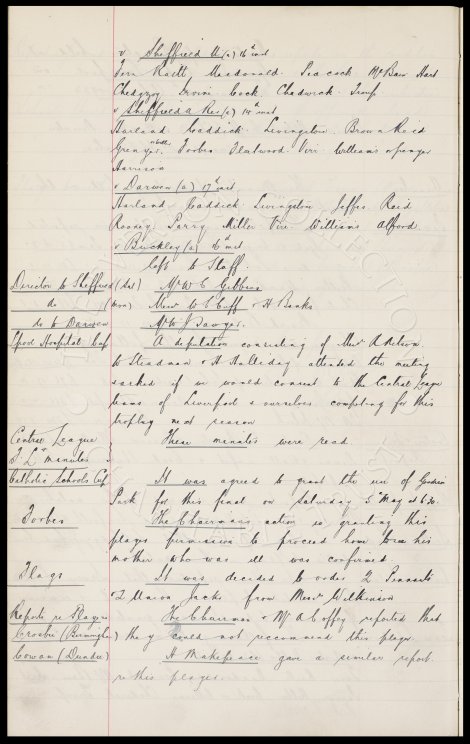 v Sheffield U (a) 16th inst
Iern Raitt Macdonald Peacock McBain Hart
Chedgzoy Irvine Cock Chadwick Troup
v Sheffield W Res (a) 14th inst
Harland Caddick Livingstone Brown Reid
Grenyer Forbes Fleetwood Virr Williams Spencer
Harrison
v Darwen (a) 17th inst
Harland Caddick Livingstone Jeffs Reid
Rooney Parry Miller Virr Williams Alford
v Buckley (a) 16th inst
left to Staff.
Director to Sheffield (Sat) Mr W C Gibbins
do (mon) Messrs W C Cuff & H Banks
do to Darwen Mr W J Sawyer.
Lpool Hospital Cup A deputation consisting of Messrs R Nelson
W Steadman & H Halliday attended the meeting
& asked if we would consent to the Central League
teams of Liverpool & ourselves competing for this
trophy next season
Central League These minutes were read
F. L. minutes
Catholic Schools Cup It was agreed to grant the use of Goodison
Park for this final on Saturday 5th May at 6.30.
Forbes The Chairman's action in granting this
player permission to proceed home to see his
mother who was ill was confirmed
Flags It was decided to order 2 Pennants
& 2 Union Jacks from Messrs Wilkinson
Reports re Players The Chairman & Mr A Coffey reported that
Crosbie (Birmingham) they could not recommend this player
Cowan (Dundee) H Makepeace gave a similar report
re this player.